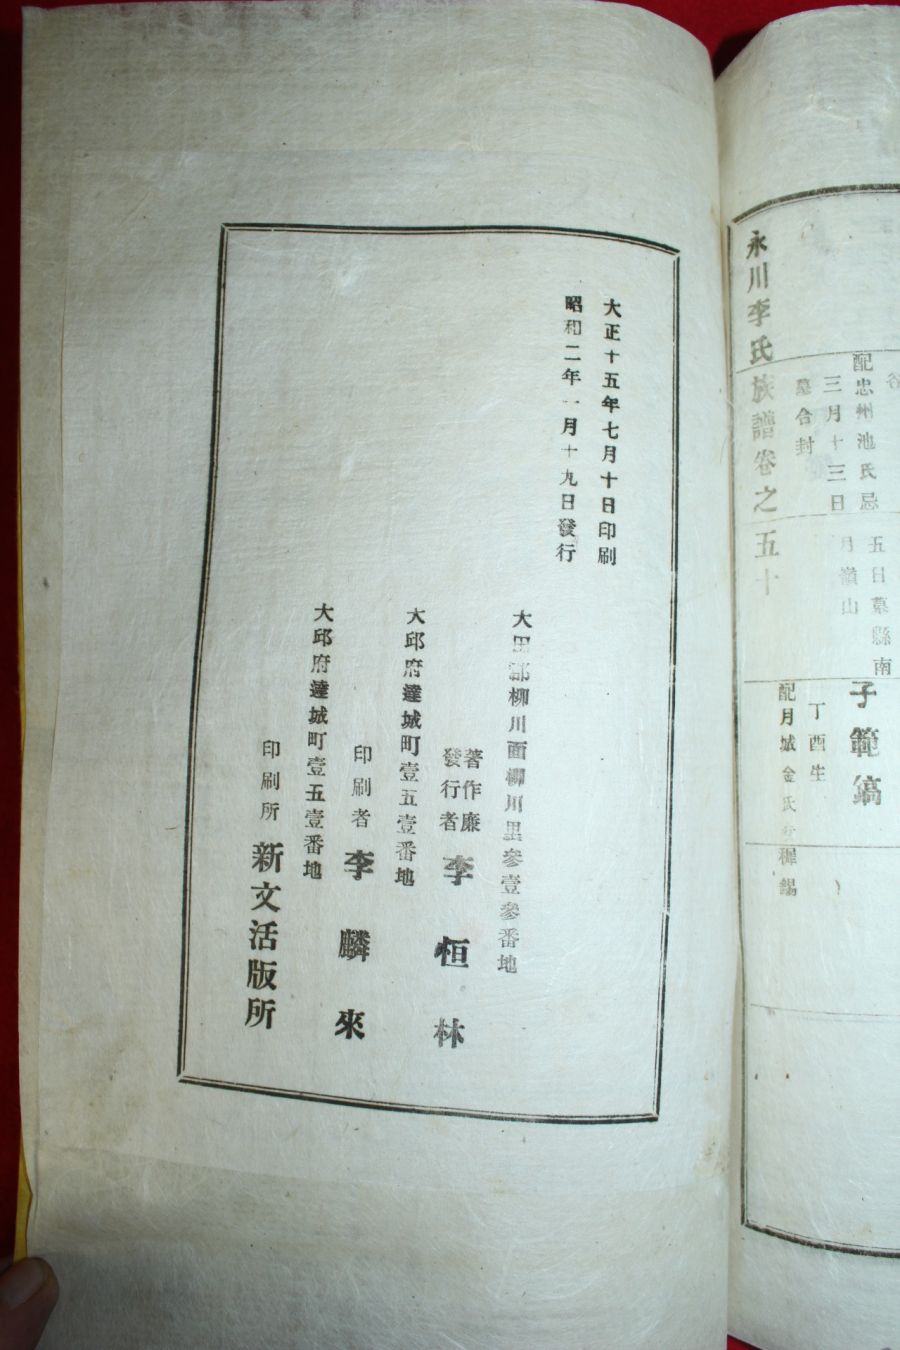 谷
配忠州池氏忌
三月十三日
墓合封
五日墓縣南
月嶺山
子範鎬
丁酉生
配月城金氏父穉錫
永川李氏族譜卷之五十
大正十五年七月十日印刷
昭和二年一月十九日發行
大田郡柳川面柳川里參壹參番地
著作兼
發行者 李恒林
大邱府達城町壹五壹番地
印刷者 李麟來
大邱府達城町壹五壹番地
印刷所 新文活版所